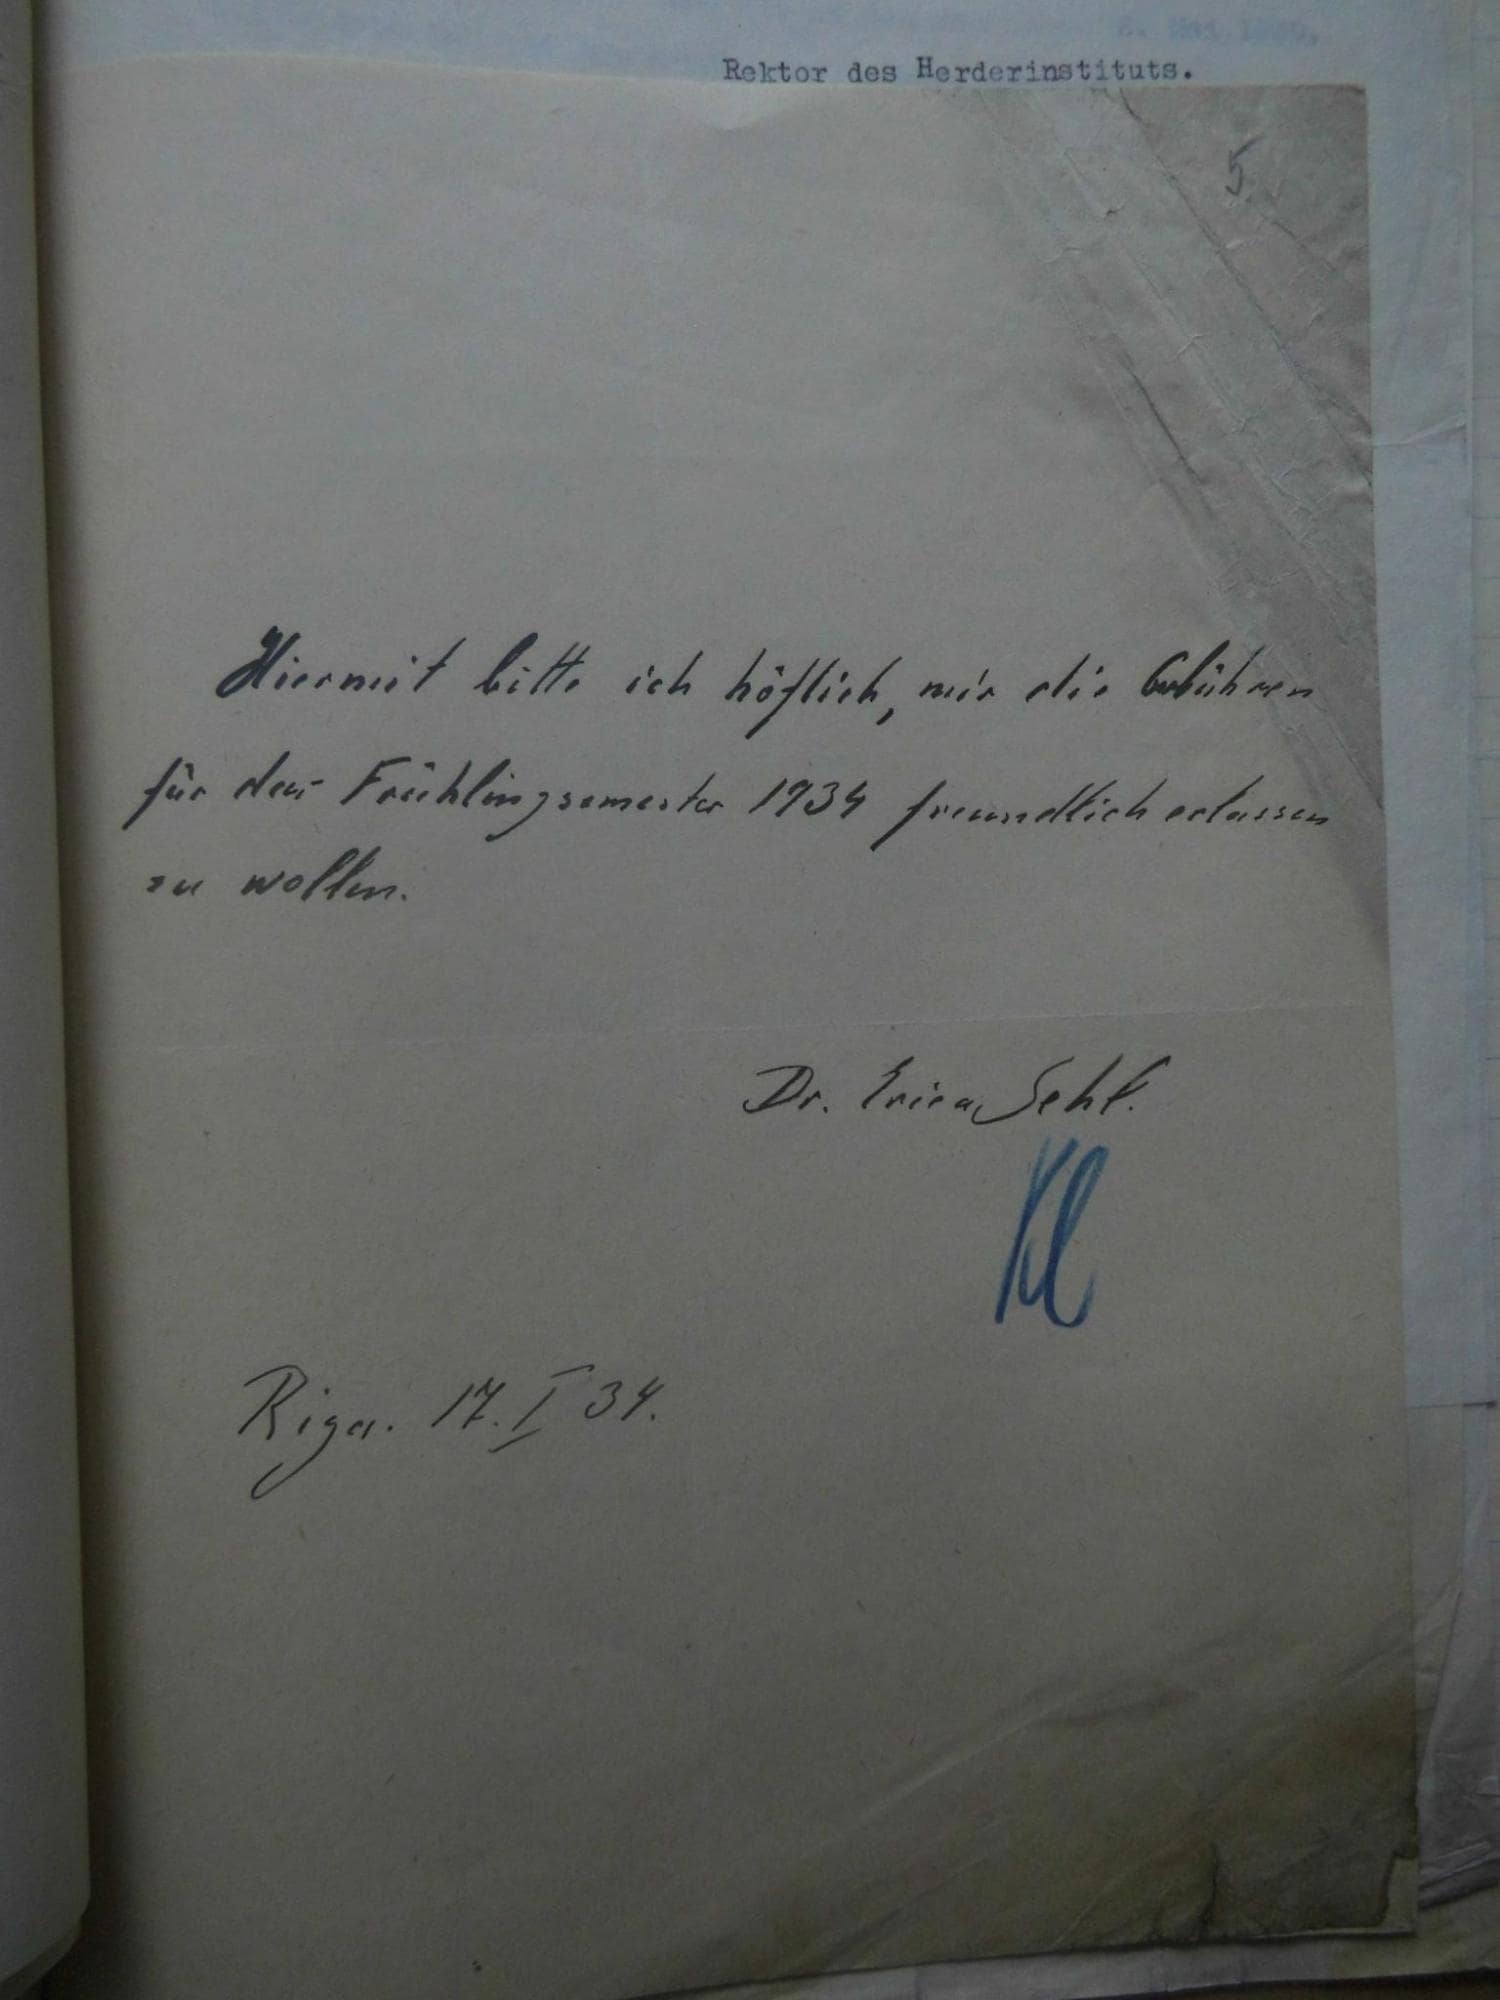 Rektor des Herderinstituts.
5.
Hiermit bitte ich höflich, mir die Gebühren
für das Frühlingsemester 1934 freundlich erlassen
zu wollen.
Dr. Erica Sehl.
Kl
Riga. 17. I 34.